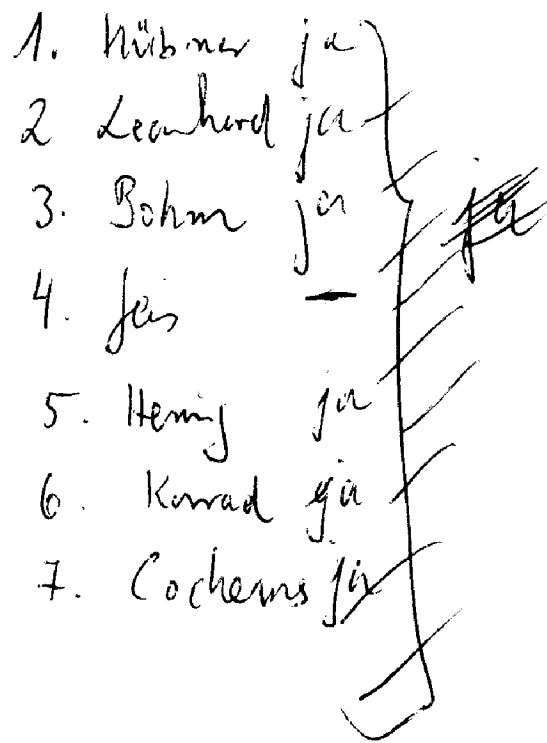 1. Hübner ja
2 Leonhard ja
3. Bohm ja
4. Jeis —
5. Hennig ja
6. Konrad ja
7. Cochems ja
ja